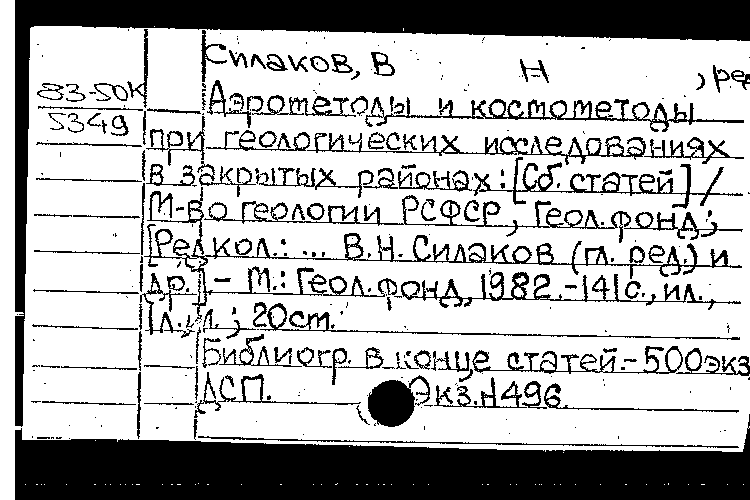 Силаков, В Н , ред
83-50К
5349
Аэрометоды и космометоды
при геологических исследованиях
в закрытых районах: [Сб. статей] /
М-во геологии РСФСР, Геол. фонд;
[Редкол.: ... В.Н. Силаков (гл. ред.) и
др.]. - М.: Геол. фонд, 1982. - 141 с., ил.,
1 л. ил.; 20 см.
Библиогр. в конце статей. - 500 экз
ДСП. Экз. N 496.